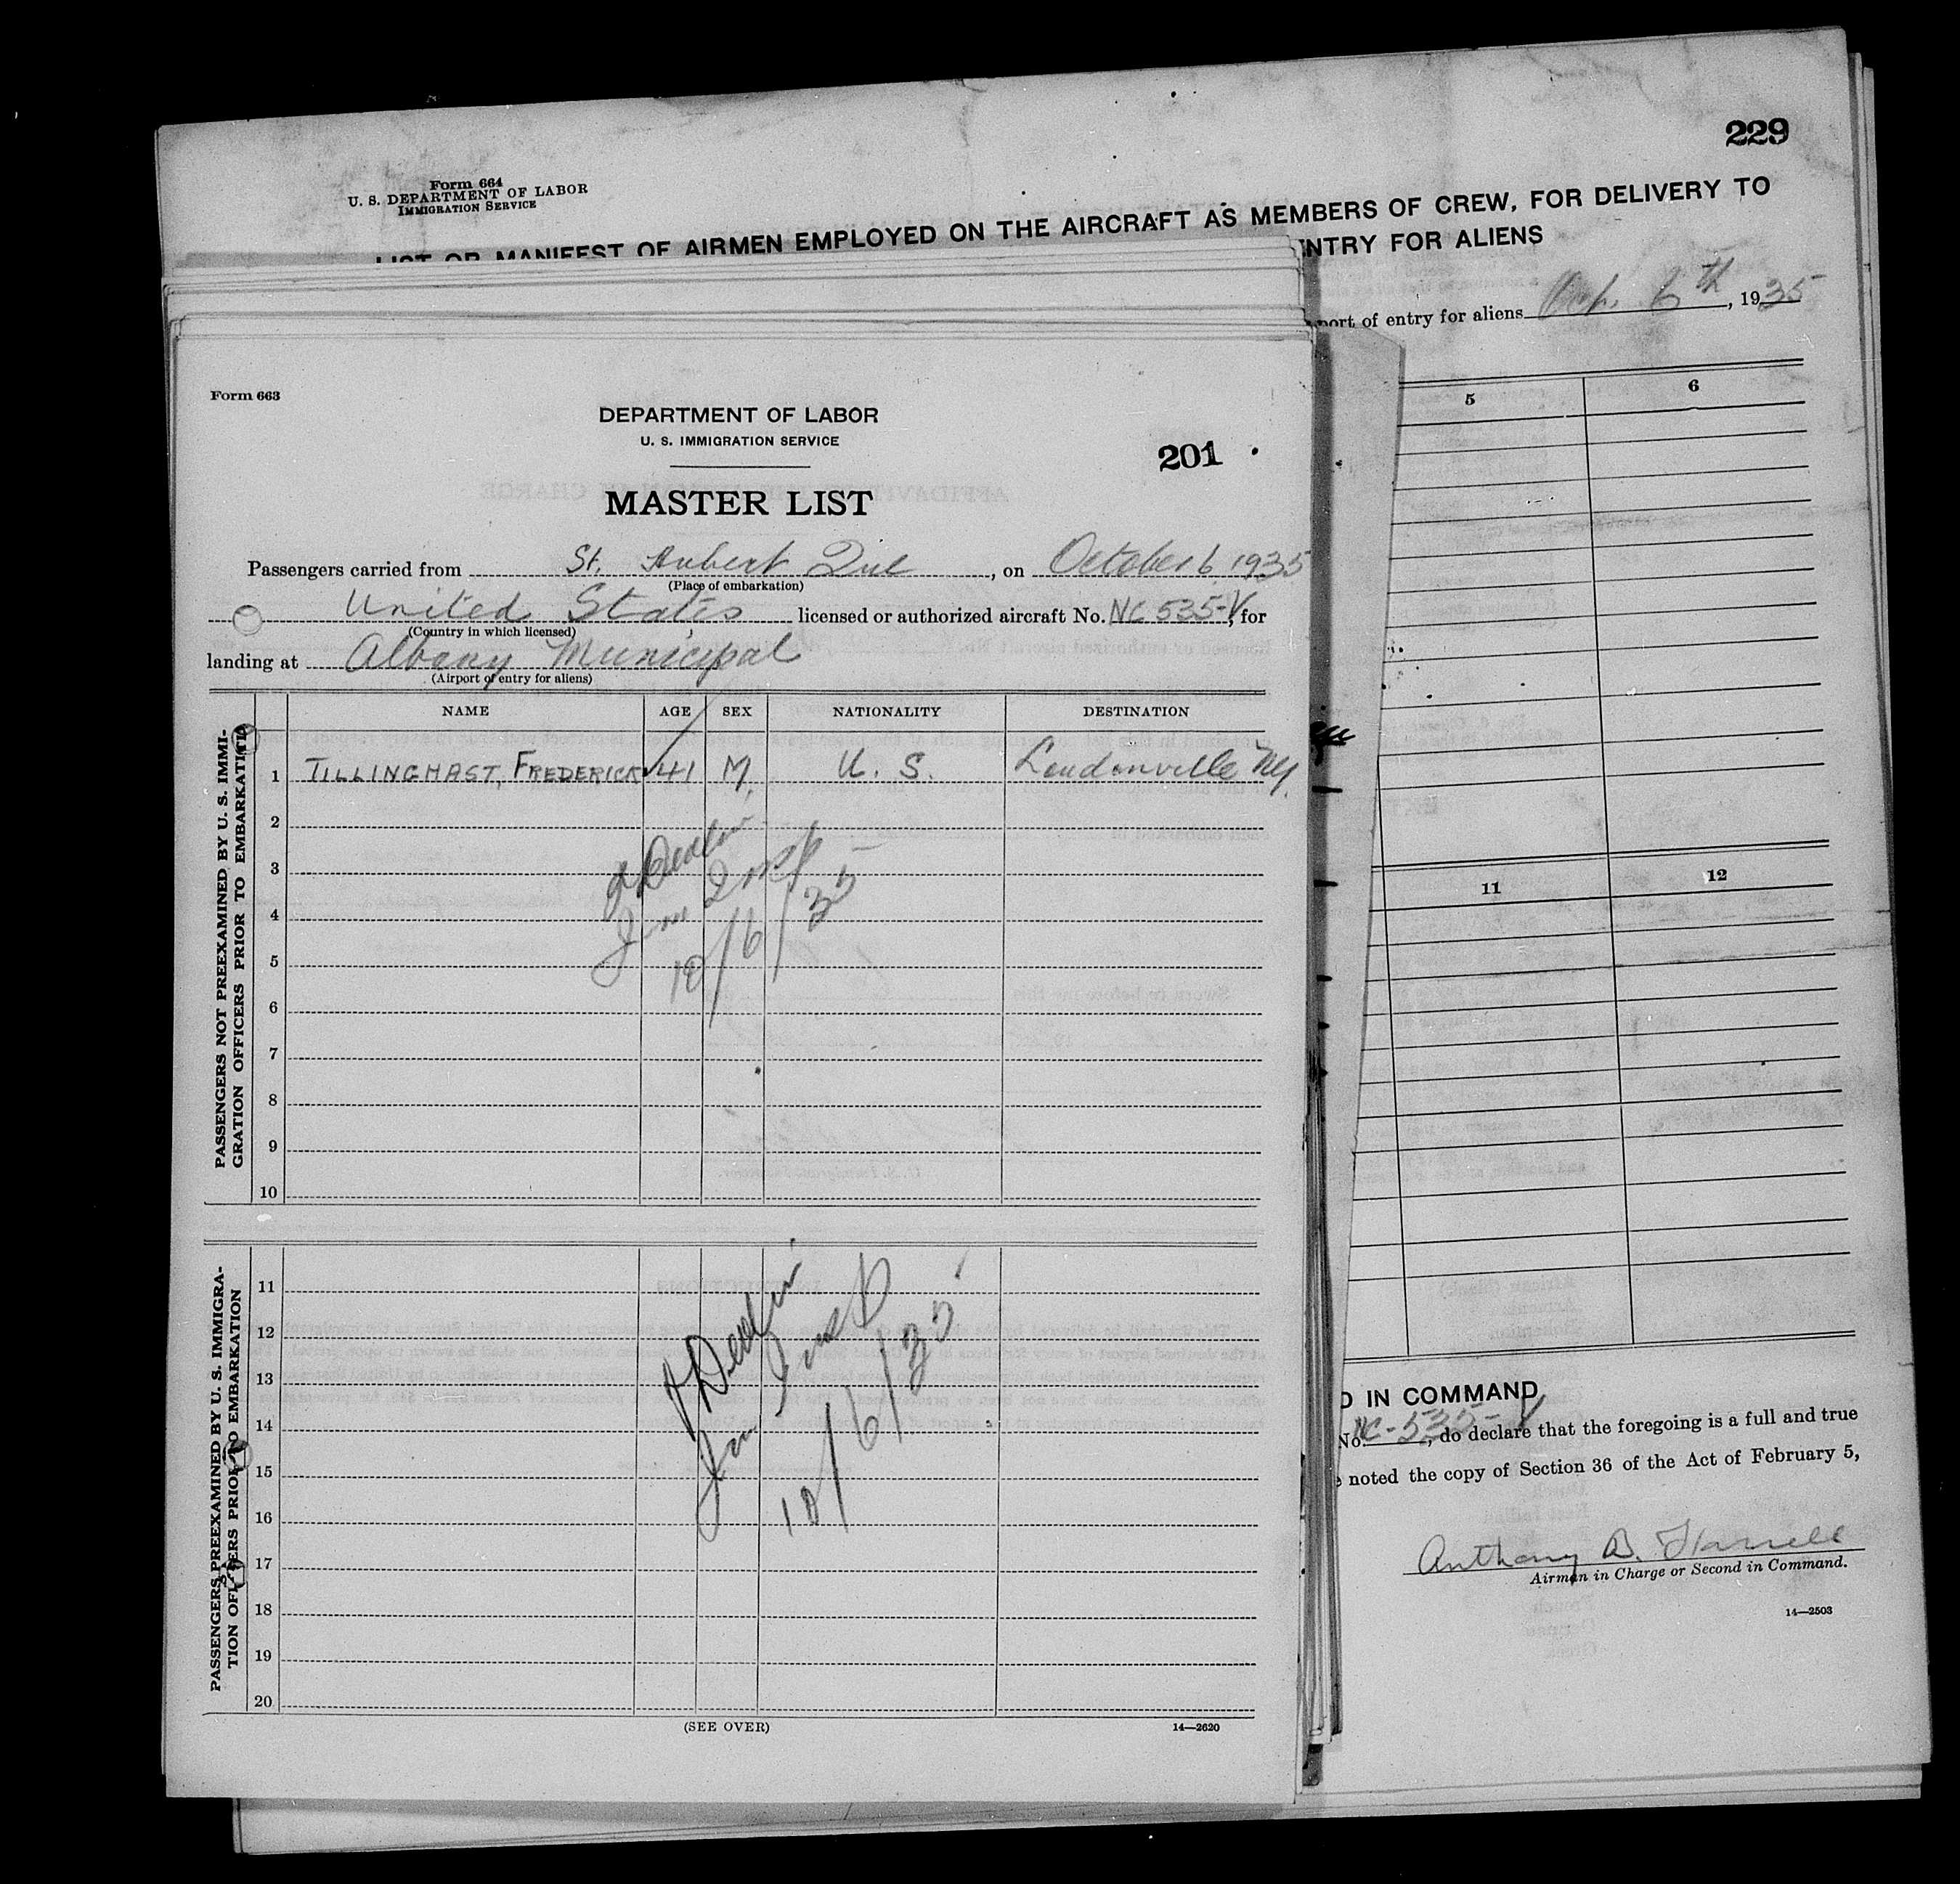 229
Form 664
U. S. DEPARTMENT OF LABOR
IMMIGRATION SERVICE
LIST OR MANIFEST OF AIRMEN EMPLOYED ON THE AIRCRAFT AS MEMBERS OF CREW, FOR DELIVERY TO
ENTRY FOR ALIENS
port of entry for aliens Oct. 6th, 1935
5 6
11 12
D IN COMMAND
No. NC-535-V, do declare that the foregoing is a full and true
noted the copy of Section 36 of the Act of February 5,
Anthony B.
Airman in Charge or Second in Command.
14—2503
Form 663
DEPARTMENT OF LABOR
U. S. IMMIGRATION SERVICE
201
MASTER LIST
Passengers carried from St. Hubert Que, on October 6, 1935
(Place of embarkation)
United States licensed or authorized aircraft No. NC 535-V, for
(Country in which licensed)
landing at Albany Municipal
(Airport of entry for aliens)
NAME AGE SEX NATIONALITY DESTINATION
PASSENGERS NOT PREEXAMINED BY U. S. IMMI-
GRATION OFFICERS PRIOR TO EMBARKATION
1 TILLINGHAST, FREDERICK 41 M. U. S. Loudonville NY.
2
3
4
5
6
7
8
9
10
Imm Insp
10/6/35
PASSENGERS PREEXAMINED BY U. S. IMMIGRA-
TION OFFICERS PRIOR TO EMBARKATION
11
12
13
14
15
16
17
18
19
20
Imm Insp
10/6/35
(SEE OVER)
14—2620